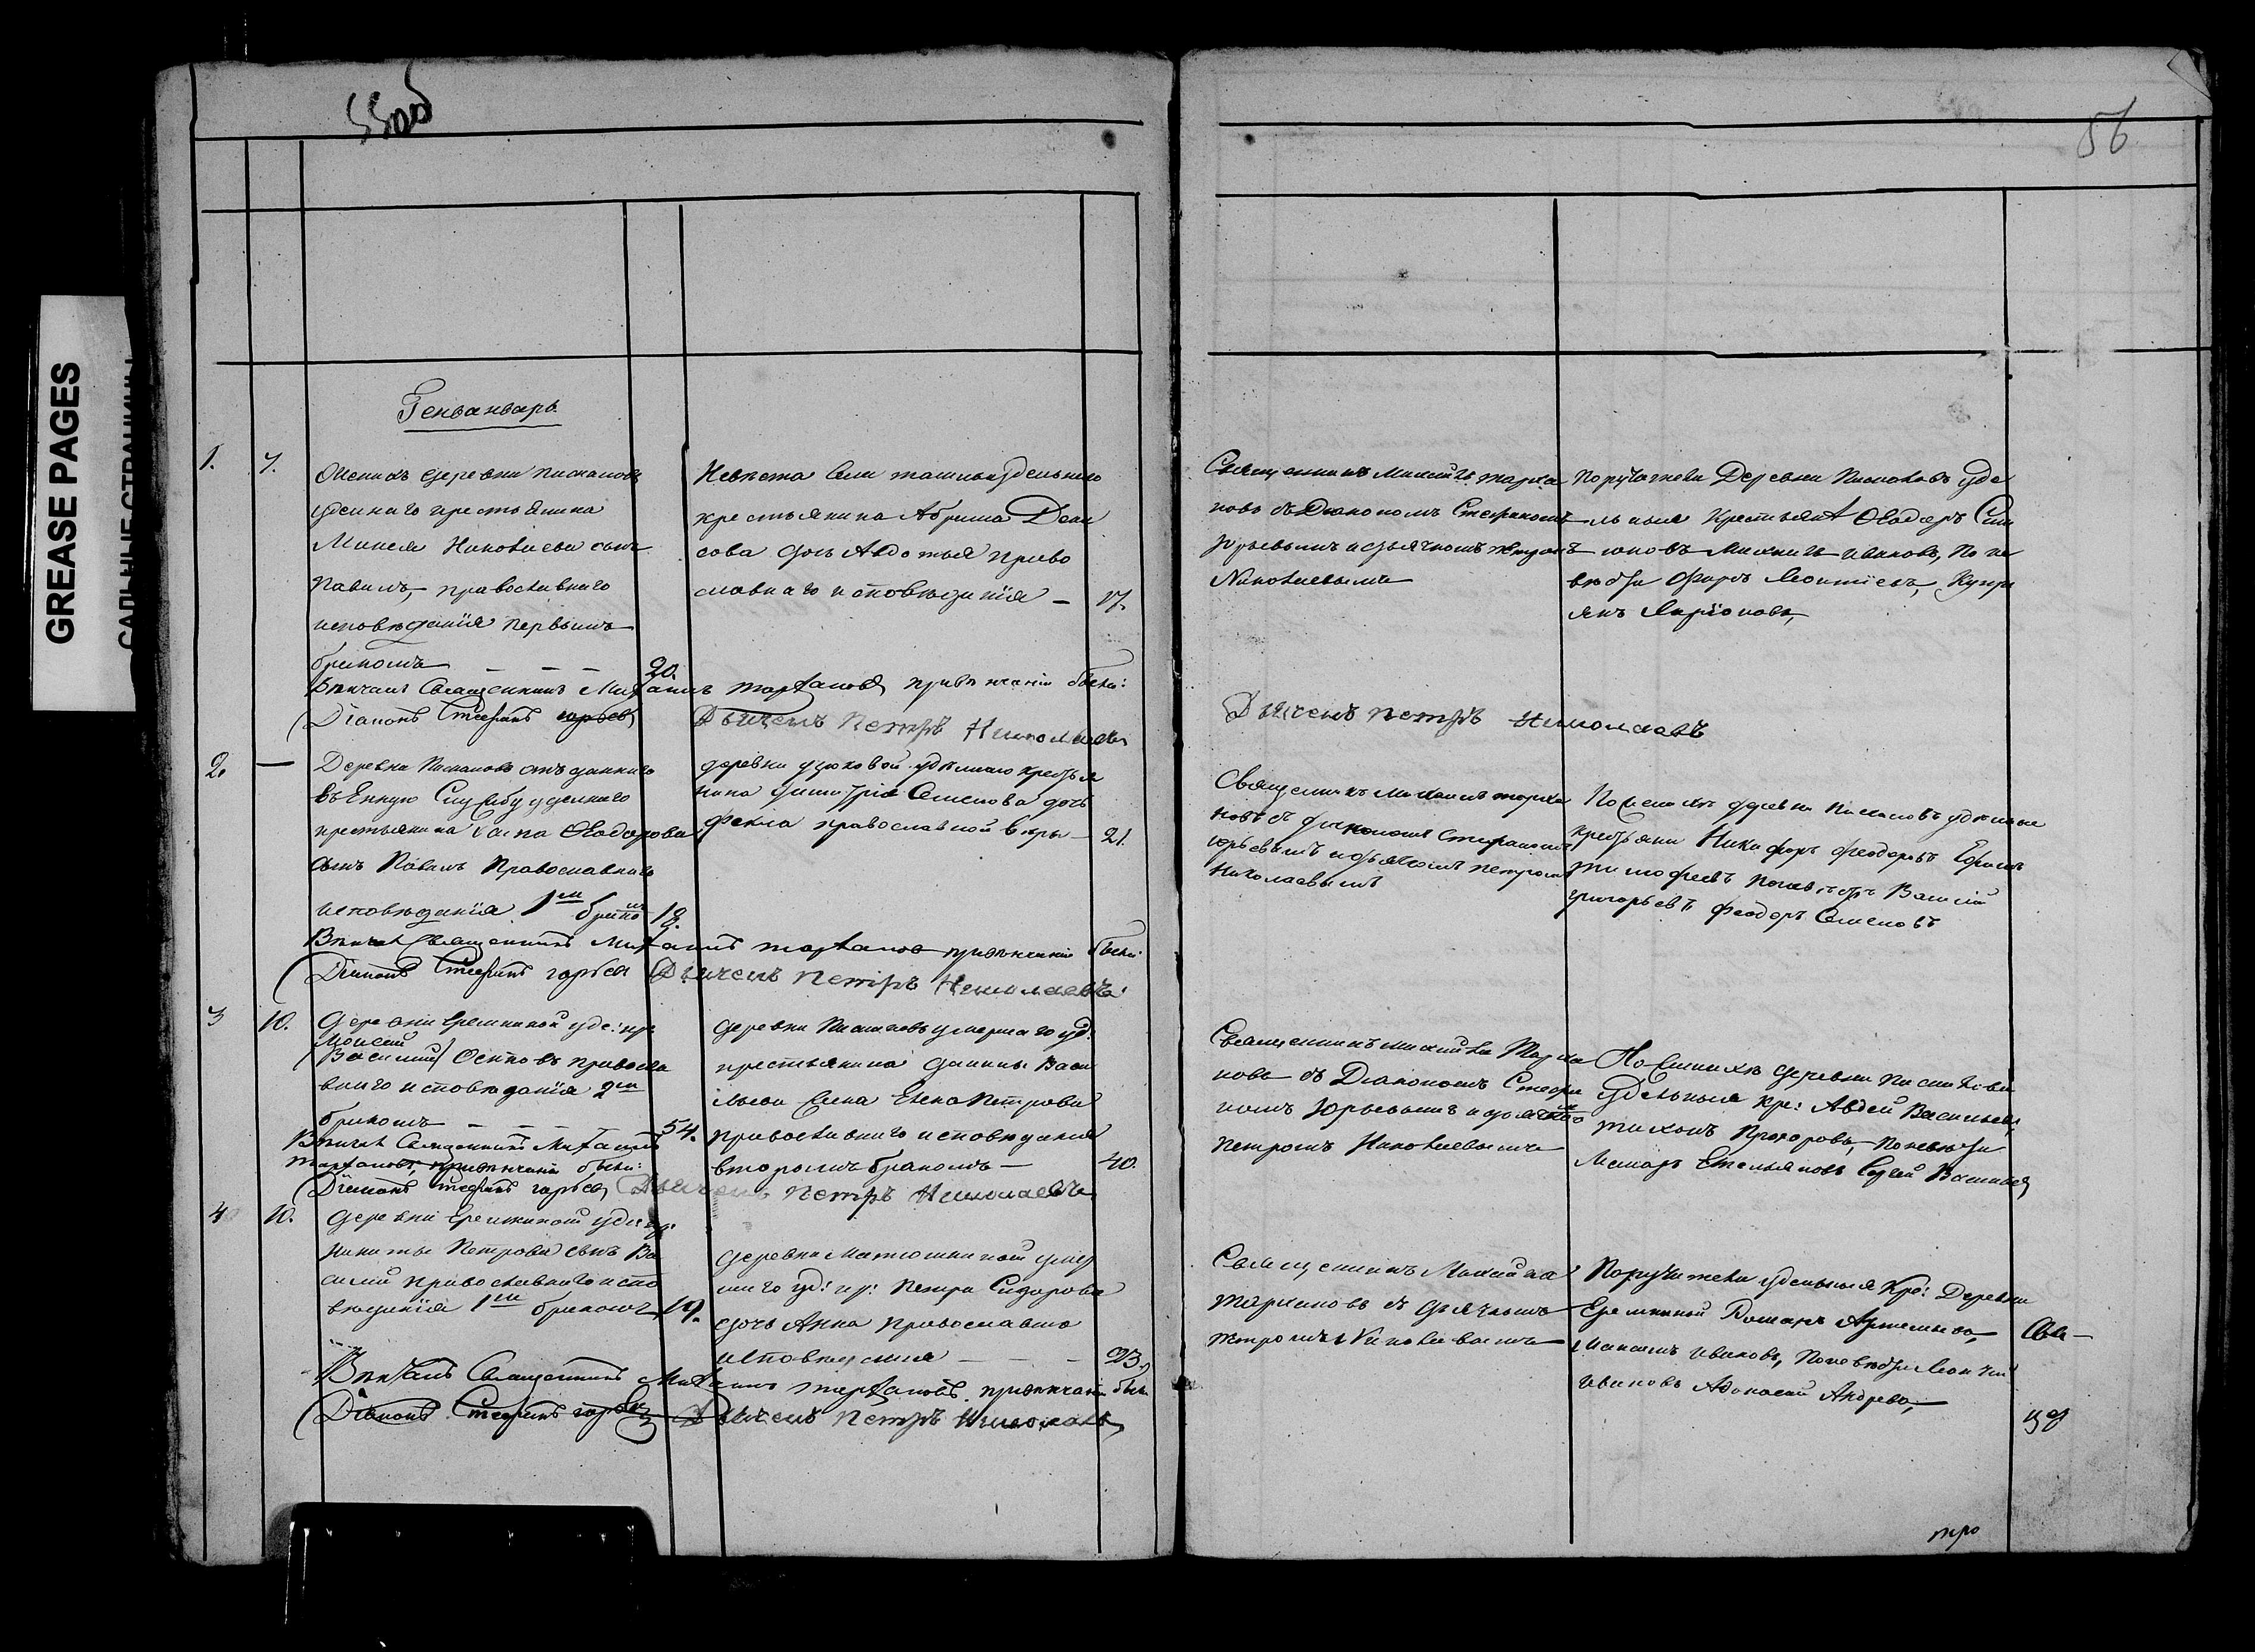 55об
56
GREASE PAGES
САЛЬНЫЕ СТРАНИЦЫ
Генваварь
1. 7.
Женихъ деревни Писмановъ
удельнаго крестьянина
Минея Николаева сынъ
Павилъ, православнаго
исповѣданія первымъ
бракомъ — — — 20.
Невѣста Села удельнаго
крестьянина Абрама Дени
сова дочь Авдотья право
славнаго исповѣданія — 17.
Вѣнчалъ Священникъ Михаилъ Тархановъ привѣнчаніи были:
Діаконъ Стефанъ Юрьевъ Дьячекъ Петръ Николаевъ
Священникъ Михаилъ Тарха
новъ съ Диакономъ Стефаномъ
Юрьевымъ и дьячкомъ Петромъ
Николаевымъ
Поручители Деревни Писмановъ уде
льныя Крестьяне Ѳеодоръ Сим
ионовъ Михаилъ Ивановъ, По не
вѣсти Леонтіевъ, Купри
янъ Ларіоновъ,
Дьячекъ Петръ Николаевъ
2. —
Деревни Писмановъ отъданнаго
въ Енную Службу уделнаго
крестьянина Ѳеодорова
сынъ Павилъ Православнаго
исповѣданія 1мъ бракомъ 18.
деревни удѣлнаго крестья
нина Димитрія Семенова дочь
Фекла православной вѣры — 21.
Вѣнчалъ Священникъ Михаилъ Тархановъ привѣнчаніи были
Діаконъ Стефанъ Юрьевъ Дьячекъ Петръ Николаевъ
Священникъ Михаилъ Тарха
новъ съ диакономъ Стефаномъ
Юрьевымъ и дьячкомъ Петромъ
Николаевымъ
По женихѣ деревни Писмановъ удѣлные
крестьяни Никифоръ Феодоровъ Ефимъ
Тимофеевъ По невѣстѣ Василій
Григорьевъ Феодоръ Семеновъ
3 10.
деревни Еремкиной уде: кре
Моисей
Василий Осиповъ правосла
внаго исповѣданія 2мъ
бракомъ — — — 54.
деревни Писмановъ умершаго уд:
крестьянина Данилы Васи
льева Жена Елена Петрова
православнаго исповѣданія
вторымъ бракомъ — 40.
Вѣнчалъ Священникъ Михаилъ
Тархановъ, привѣнчаніи были:
Діаконъ Стефанъ Юрьевъ Дьячекъ Петръ Николаевъ
Священникъ Михаилъ Тарха
новъ съ Диакономъ Стефа
номъ Юрьевымъ и дьячкомъ
Петромъ Николаевымъ
По Женихѣ деревни Писмановъ
Удельныя кре: Авдей Васильевъ,
Тихонъ Прохоровъ, по невѣсти
Емельяновъ Сергей Васильевъ
4 10.
деревни Еремкиной уде: кр:
Никиты Петрова сынъ Ва
силий православнаго испо
вѣданія 1мъ бракомъ 19.
деревни Матюшкиной умер
шаго уд: кр: Петра Сидорова
дочь Анна Православнаго
исповѣданія — — — 23.
Вѣнчалъ Священникъ Михаилъ Тархановъ. привѣнчаніи были
Діаконъ Стефанъ Юрьевъ Дьячекъ Петръ Николаевъ
Священникъ Михаилъ
Тархановъ съ дьячкомъ
Петромъ Николаевымъ
Поручители удельныя Кре: Деревни
Еремкиной Романъ Артемьевъ,
Ивановъ, По невѣсти
Ивановъ Андреевъ,
тро